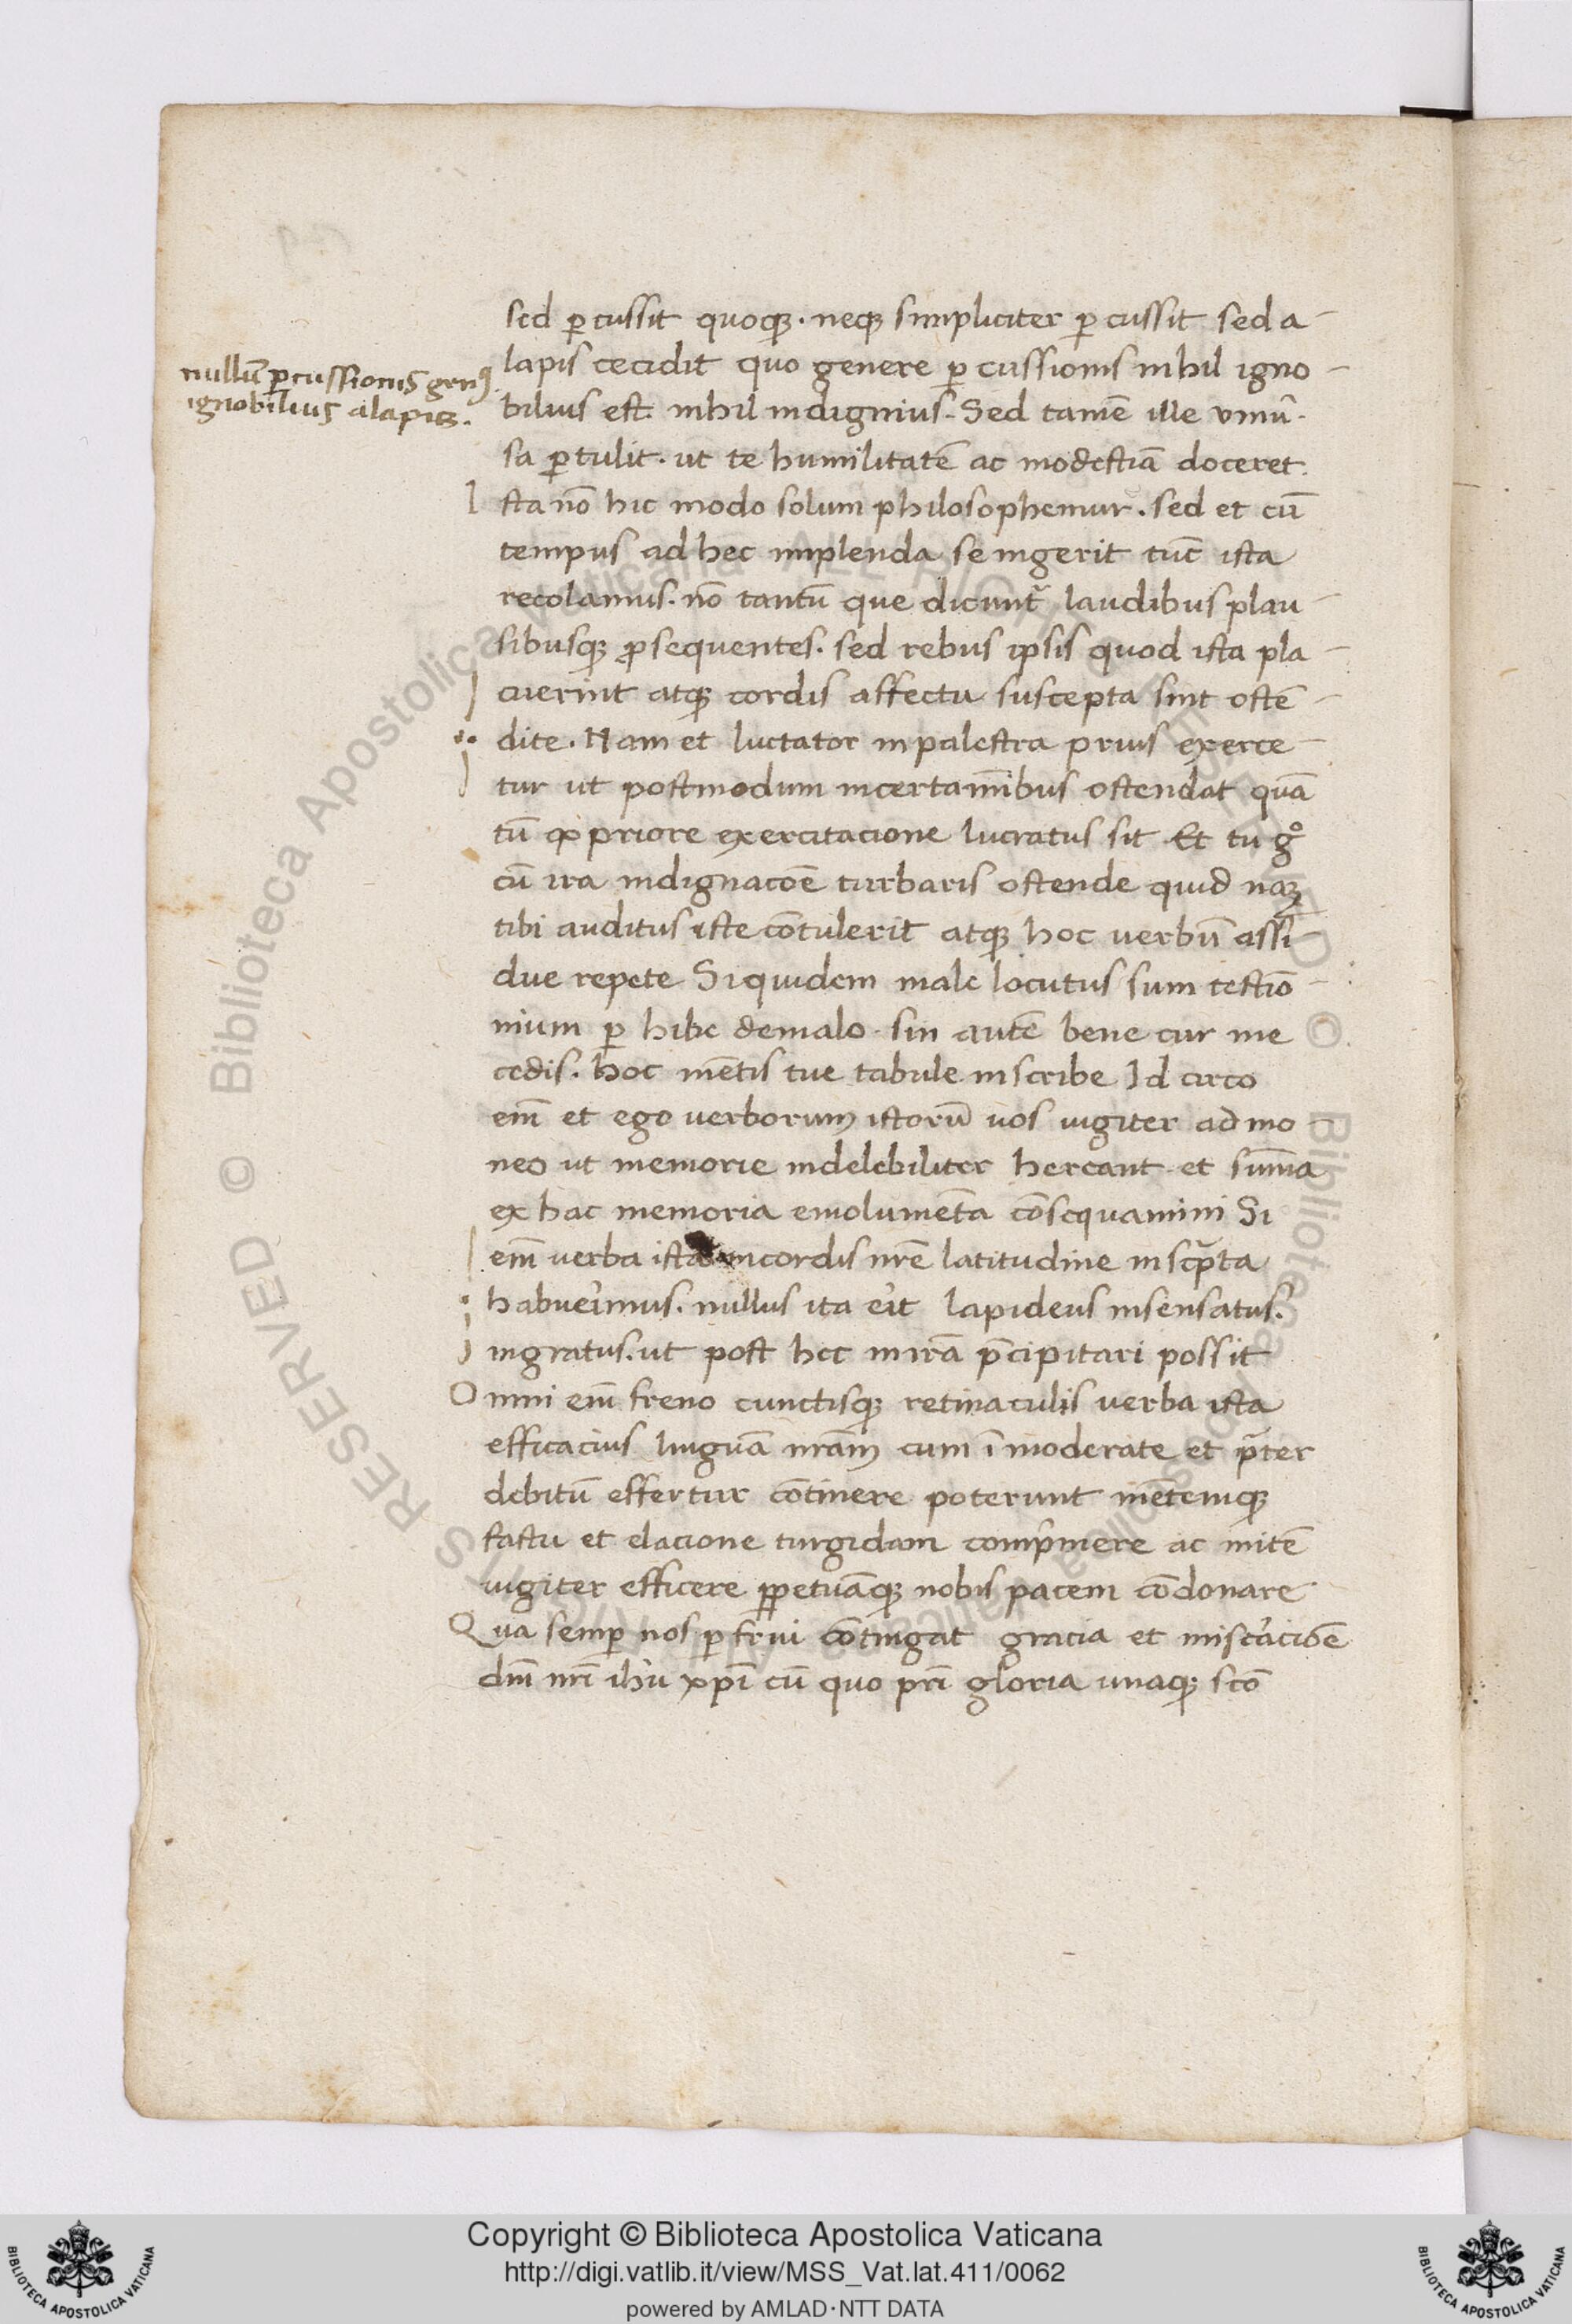 sed ꝑcussit quoqꝫ. neqꝫ simpliciter ꝑcussit sed a-
lapis cecidit quo genere ꝑcussionis nihil igno-
nullū ꝑcussionis genꝰ
ignobilius alapis.
bilius est. nihil indignius. Sed tamē ille vniū.
sa ꝑtulit. ut te humilitatē ac modestiā doceret.
Ista nō hic modo solum philosophemur. sed et cū
tempus ad hec implenda se ingerit tūc ista
recolamus. nō tantū que dicunt᷑ laudibus plau-
sibusqꝫ ꝓsequentes. sed rebus ipsis quod ista pla-
cuerint atqꝫ cordis affectu suscepta sint ostē-
dite. Nam et luctator in palestra prius exerce-
tur ut postmodum in certaminibus ostendat quā
tū ex priore exercitacione lucratus sit. Et tu gͦ
cū ira indignacōe turbaris ostende quid naꝫ
tibi auditus iste cōtulerit atqꝫ hoc verbū assi-
due repete Si quidem male locutus sum testio-
nium ꝑhibe de malo. sin autē bene cur me
cedis. hoc mētis tue tabule inscribe Id circo
em̄ et ego verborum istorū uos iugiter admo-
neo ut memorie indelebiliter hereant et sūma
ex hac memoria emolumēta cōsequamini Si
em̄ verba ista in cordis nr̄e latitudine inscͥpta
habueͥmus. nullus ita eͥt lapideus insensatus.
ingratus. ut post hec in irā p̄cipitari possit
Omni em̄ freno cunctisqꝫ retinaculis verba ista
efficacius linguā nrām cum īmoderate et p̄ter
debitū effertur cōtinere poterunt mētemqꝫ
fastu et elacione turgidam compͥmere ac mitē
iugiter efficere ꝑpetuāqꝫ nobis pacem cōdonare
Qua semꝑ nos ꝑfrui cōtingat gracia et miseracioē
dn̄i nr̄i ihū xp̄i cū quo pr̄i gloria unaqꝫ scō
Copyright © Biblioteca Apostolica Vaticana
http://digi.vatlib.it/view/MSS_Vat.lat.411/0062
powered by AMLAD·NTT DATA